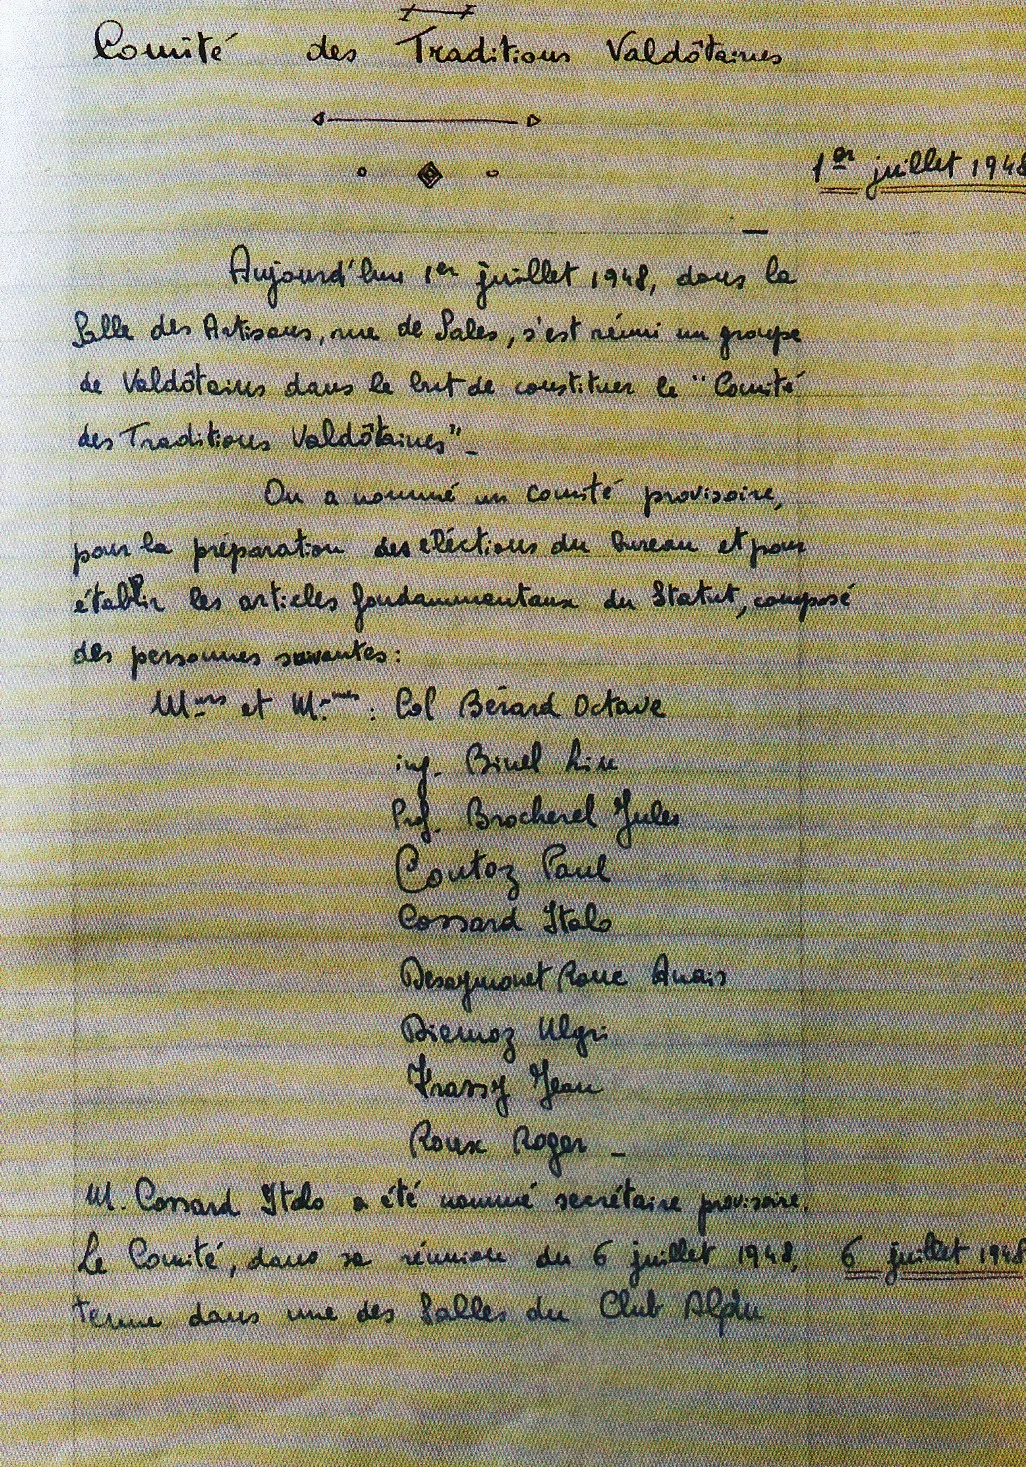 Comité des Traditions Valdôtaines
1er juillet 1948
Aujourd'hui 1er juillet 1948, dans la
Salle des Artisans, rue de Sales, s'est réuni un groupe
de Valdôtains dans le but de constituer le "Comité
des Traditions Valdôtaines"_
On a nommé un comité provisoire,
pour la préparation des eléctions du bureau et pour
établir les articles fondammentaux du Statut, composé
des personnes suivantes:
Mrs et M.mes: Col Bérard Octave
ing. Binel Lin
Prof. Brocherel Jules
Coutoz Paul
Cossard Italo
Desaymonet Roux Anais
Diemoz Ulgri
Frassy Jean
Roux Roger _
M. Cossard Italo a été nommé secrétaire provisoire.
Le Comité, dans sa réunion du 6 juillet 1948, 6 juillet 1948
tenue dans une des Salles du Club Alpin